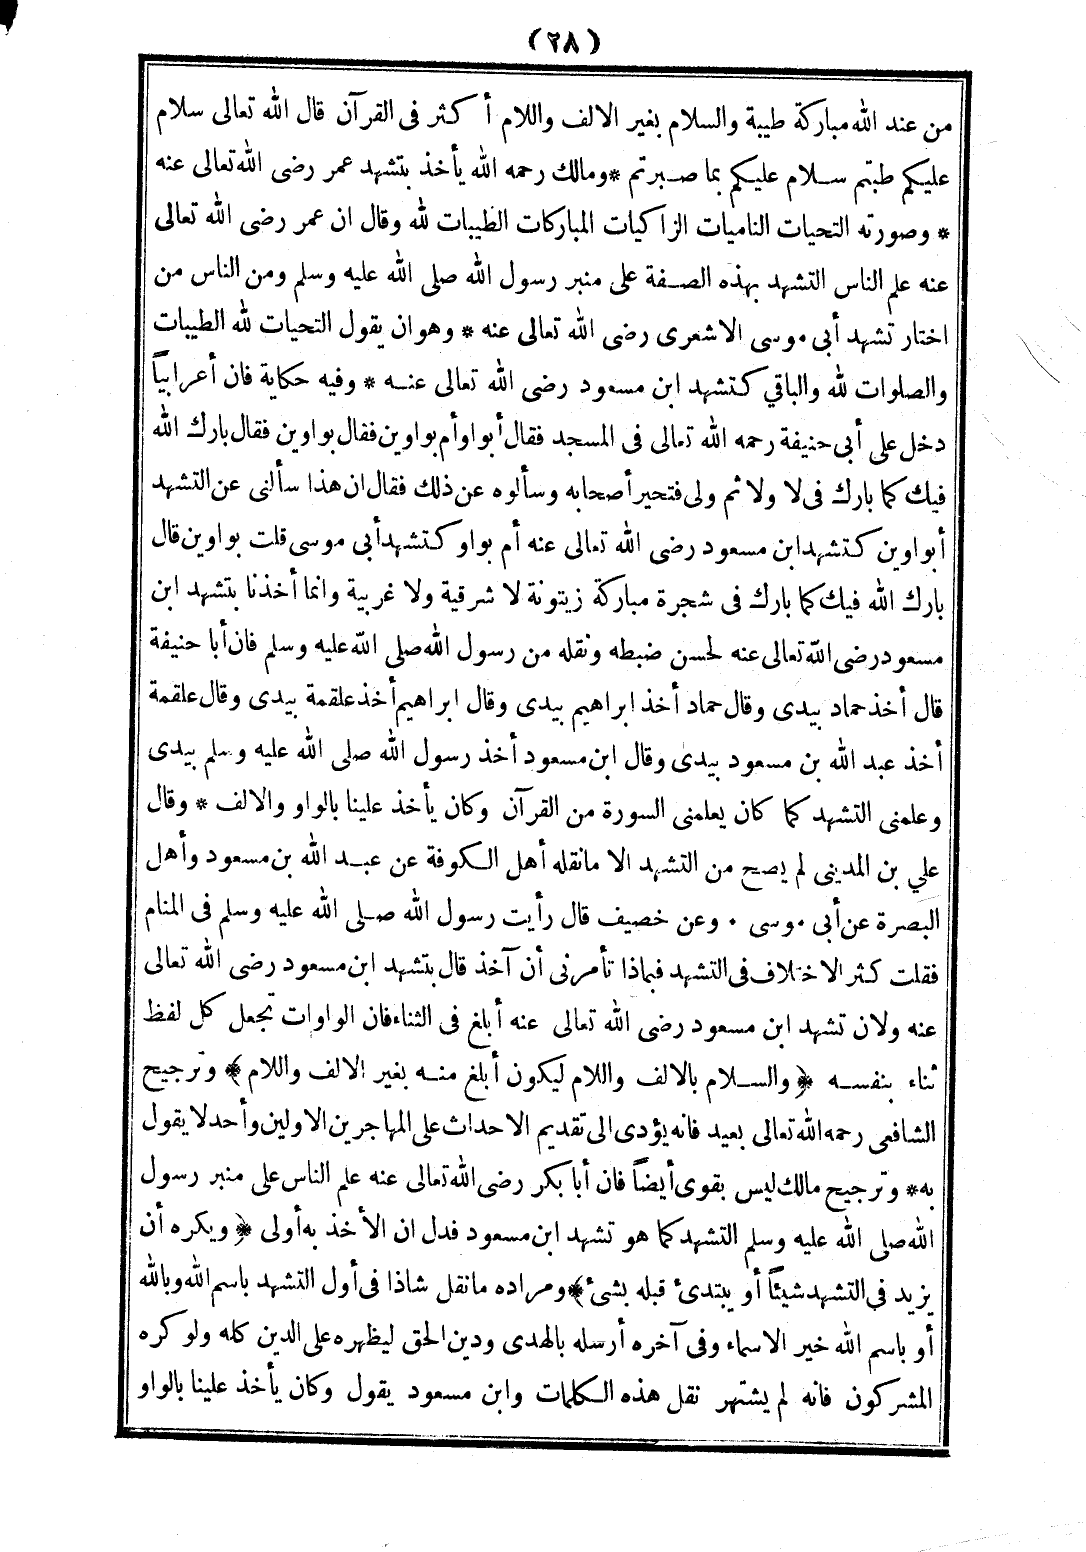 (٢٨)
من عند الله مباركة طيبة والسلام بغير الالف واللام أكثر فى القرآن قال الله تعالى سلام
عليكم طبتم سلام عليكم بما صبرتم *ومالك رحمه الله يأخذ بتشهد عمر رضى الله تعالى عنه
* وصورته التحيات الناميات الزاكيات المباركات الطيبات لله وقال ان عمر رضى الله تعالى
عنه علم الناس التشهد بهذه الصفة على منبر رسول الله صلى الله عليه وسلم ومن الناس من
اختار تشهد أبى موسى الاشعرى رضى الله تعالى عنه * وهو ان يقول التحيات لله الطيبات
والصلوات لله والباقي كتشهد ابن مسعود رضى الله تعالى عنه * وفيه حكاية فان أعرابياً
دخل على أبى حنيفة رحمه الله تعالى فى المسجد فقال أبواو أم بواوين فقال بواوين فقال بارك الله
فيك كما بارك فى لا ولا ثم ولى فتحير أصحابه وسألوه عن ذلك فقال ان هذا سألنى عن التشهد
أبواوين كتشهد ابن مسعود رضى الله تعالى عنه أم بواو كتشهد أبى موسى قلت بواوين قال
بارك الله فيك كما بارك فى شجرة مباركة زيتونة لا شرقية ولا غربية وانما أخذنا بتشهد ابن
مسعود رضى الله تعالى عنه لحسن ضبطه ونقله من رسول الله صلى الله عليه وسلم فان أبا حنيفة
قال أخذ حماد بيدى وقال حماد أخذ ابراهيم بيدى وقال ابراهيم أخذ علقمة بيدى وقال علقمة
أخذ عبد الله بن مسعود بيدى وقال ابن مسعود أخذ رسول الله صلى الله عليه وسلم بيدى
وعلمنى التشهد كما كان يعلمنى السورة من القرآن وكان يأخذ علينا بالواو والالف * وقال
علي بن المدينى لم يصح من التشهد الا مانقله أهل الكوفة عن عبد الله بن مسعود وأهل
البصرة عن أبى موسى ٠ وعن خصيف قال رأيت رسول الله صلى الله عليه وسلم فى المنام
فقلت كثر الاختلاف فى التشهد فبماذا تأمرنى أن آخذ قال بتشهد ابن مسعود رضى الله تعالى
عنه ولان تشهد ابن مسعود رضى الله تعالى عنه أبلغ فى الثناء فان الواوات تجعل كل لفظ
ثناء بنفسه ﴿والسلام بالالف واللام ليكون أبلغ منه بغير الالف واللام﴾ وترجيح
الشافعى رحمه الله تعالى بعيد فانه يؤدى الى تقديم الاحداث على المهاجرين الاولين وأحد لا يقول
به* وترجيح مالك ليس بقوى أيضاً فان أبا بكر رضى الله تعالى عنه علم الناس على منبر رسول
الله صلى الله عليه وسلم التشهد كما هو تشهد ابن مسعود فدل ان الأخذ به أولى ﴿ويكره أن
يزيد في التشهد شيئاً أو يبتدئ قبله بشئ﴾ ومراده مانقل شاذا فى أول التشهد باسم الله وبالله
أو باسم الله خير الاسماء وفى آخره أرسله بالهدى ودين الحق ليظهره على الدين كله ولو كره
المشركون فانه لم يشتهر نقل هذه الكلمات وابن مسعود يقول وكان يأخذ علينا بالواو